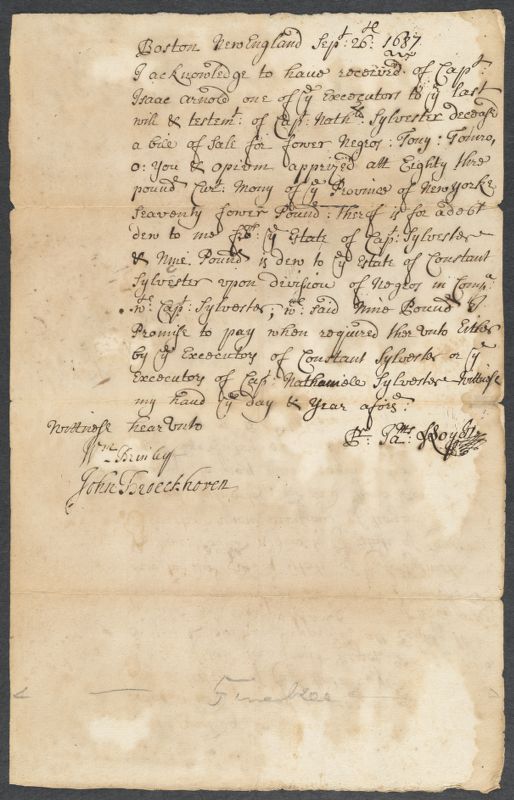 Boston NewEngland Sept: 26th: 1687
I acknowledge to have received of Capt:
Isaac Arnold one of ye Excecutors to ye last
will & testemt: of Capt: Nathll: Sylvester deceasd
a bile of Sale for fower Negros: Tony: Tomro,
O: You & opium apprized att Eighty thre
pound Curt: Mony of ye Province of NewYorke
Seaventy fower Pound: therof is for a debt
dew to me ye Estate of Capt: Sylvester
& Nine Pound is dew to ye Estate of Constant
Sylvester vpon division of Negros in Compa
wt: Capt: Sylvester; wt: said Nine Pound I
Promise to pay when required ther vnto Either
by ye Excecutors of Constant Sylvester or ye
Excecutors of Capt: Nathaniele Sylvester Wittnese
my hand ye day & Year aforsd:
Wittnese hear vnto
Pr: Jams: Lloyd
Wm Brinley
John Broeckhoven